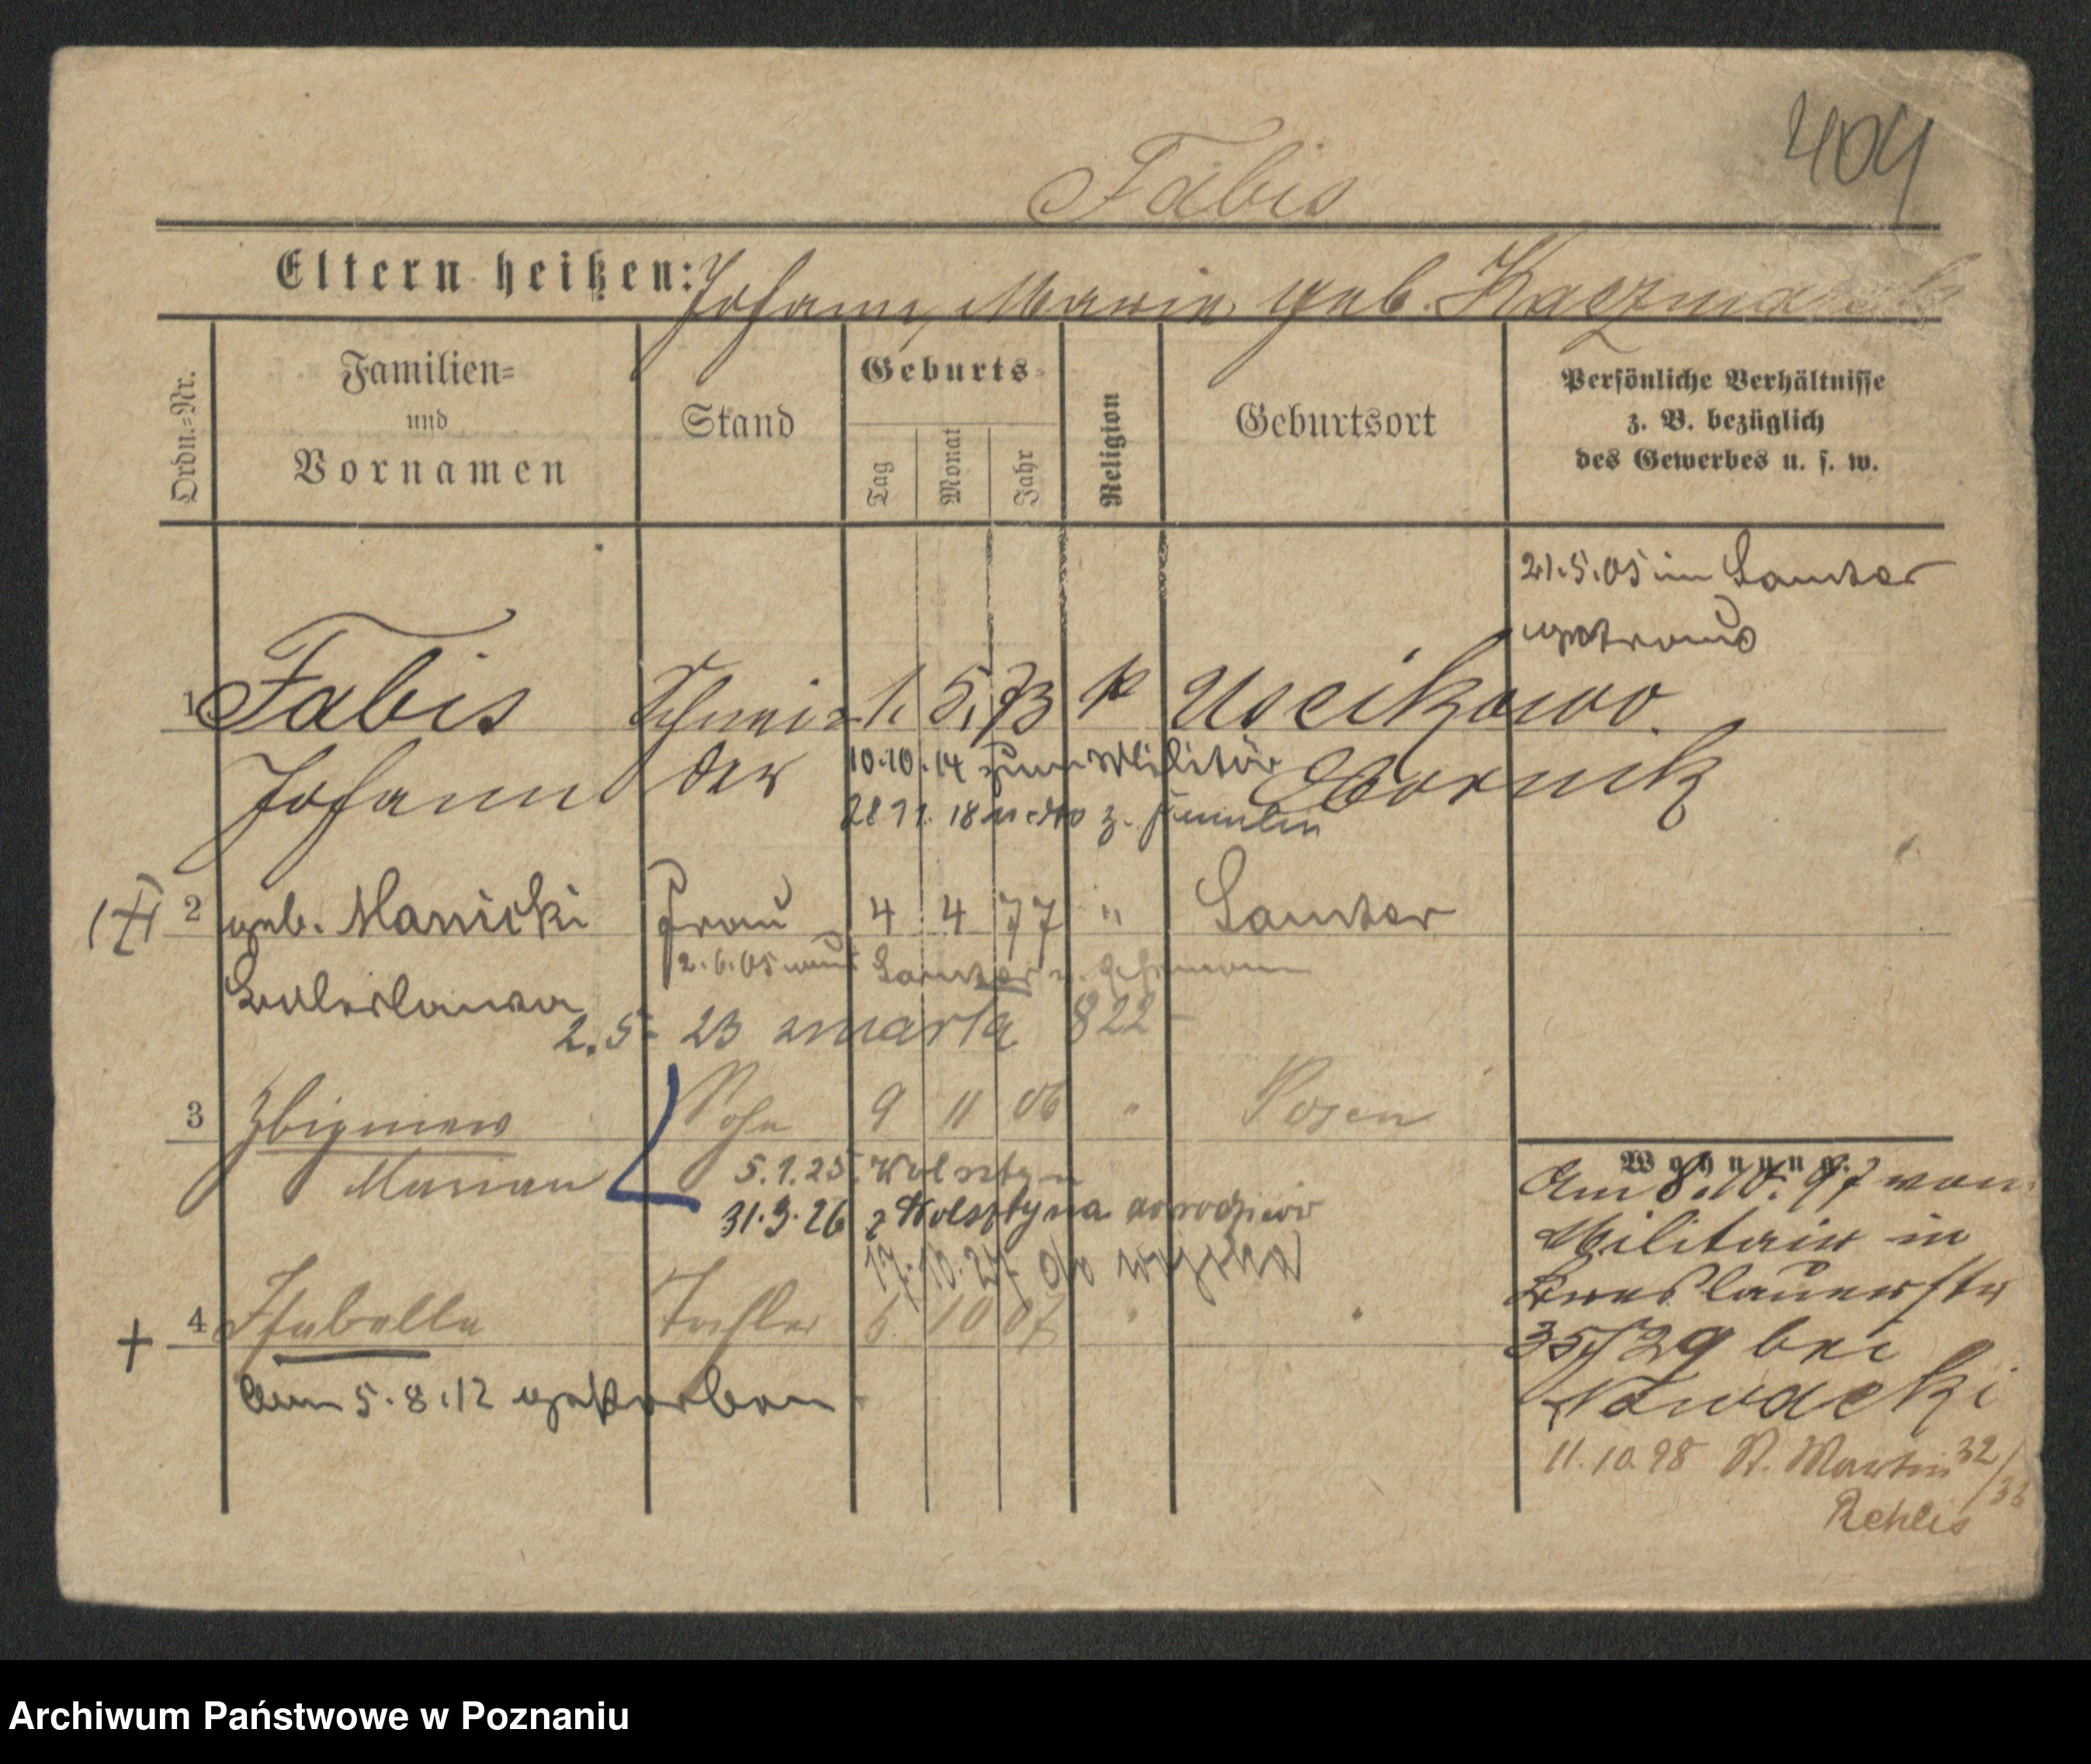 404
Fabis
Eltern heißen: Johann, Marie geb. Kaczmarek
Ordn.-Nr.
Familien-
und
Vornamen
Stand
Geburts-
Tag
Monat
Jahr
Religion
Geburtsort
Persönliche Verhältnisse
z. B. bezüglich
des Gewerbes u. s. w.
21.5.05 in Samter
getraut
1 Fabis Schnei- 1. 5. 73 k Uscikowo
Johann der Obornik
10.10.14 zum Militär
28 11. 18 z. Familie
2 geb. Manicki Frau 4 4 77 " Samter
2.6.05 aus Samter z. Ehemann
2.5. 23 zmarła 822
3 Zbigniew Sohn 9 11 06 " Posen
Marian
5.1.25. Wolsztyn
31.3.26 z Wolsztyna do rodziców
17.10.27 do wojska
+ 4 Isabella Tochter 6. 10 07 " "
Am 5.8.12 gestorben
Wohnung:
Am 8.10.97 vom
Militair in
Breslauerstr
35/39 bei
Nowacki
11.10.98 St. Martin 32/33